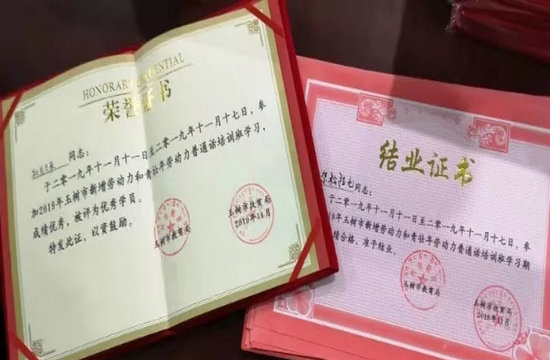 HONORARY CREDENTIAL
荣誉证书
同志:
于二〇一九年十一月十一日至二〇一九年十一月十七日，参
加2019年玉树市新增劳动力和青壮年劳动力普通话培训班学习，
成绩优秀，被评为优秀学员。
特发此证，以资鼓励。
玉树市教育局
玉树市扶贫局
2019年11月
结业证书
同志:
于二〇一九年十一月十一日至二〇一九年十一月十七日，参
2019年玉树市新增劳动力和青壮年劳动力普通话培训班学习期
绩合格，准予结业。
玉树市教育局
玉树市扶贫局
2019年11月